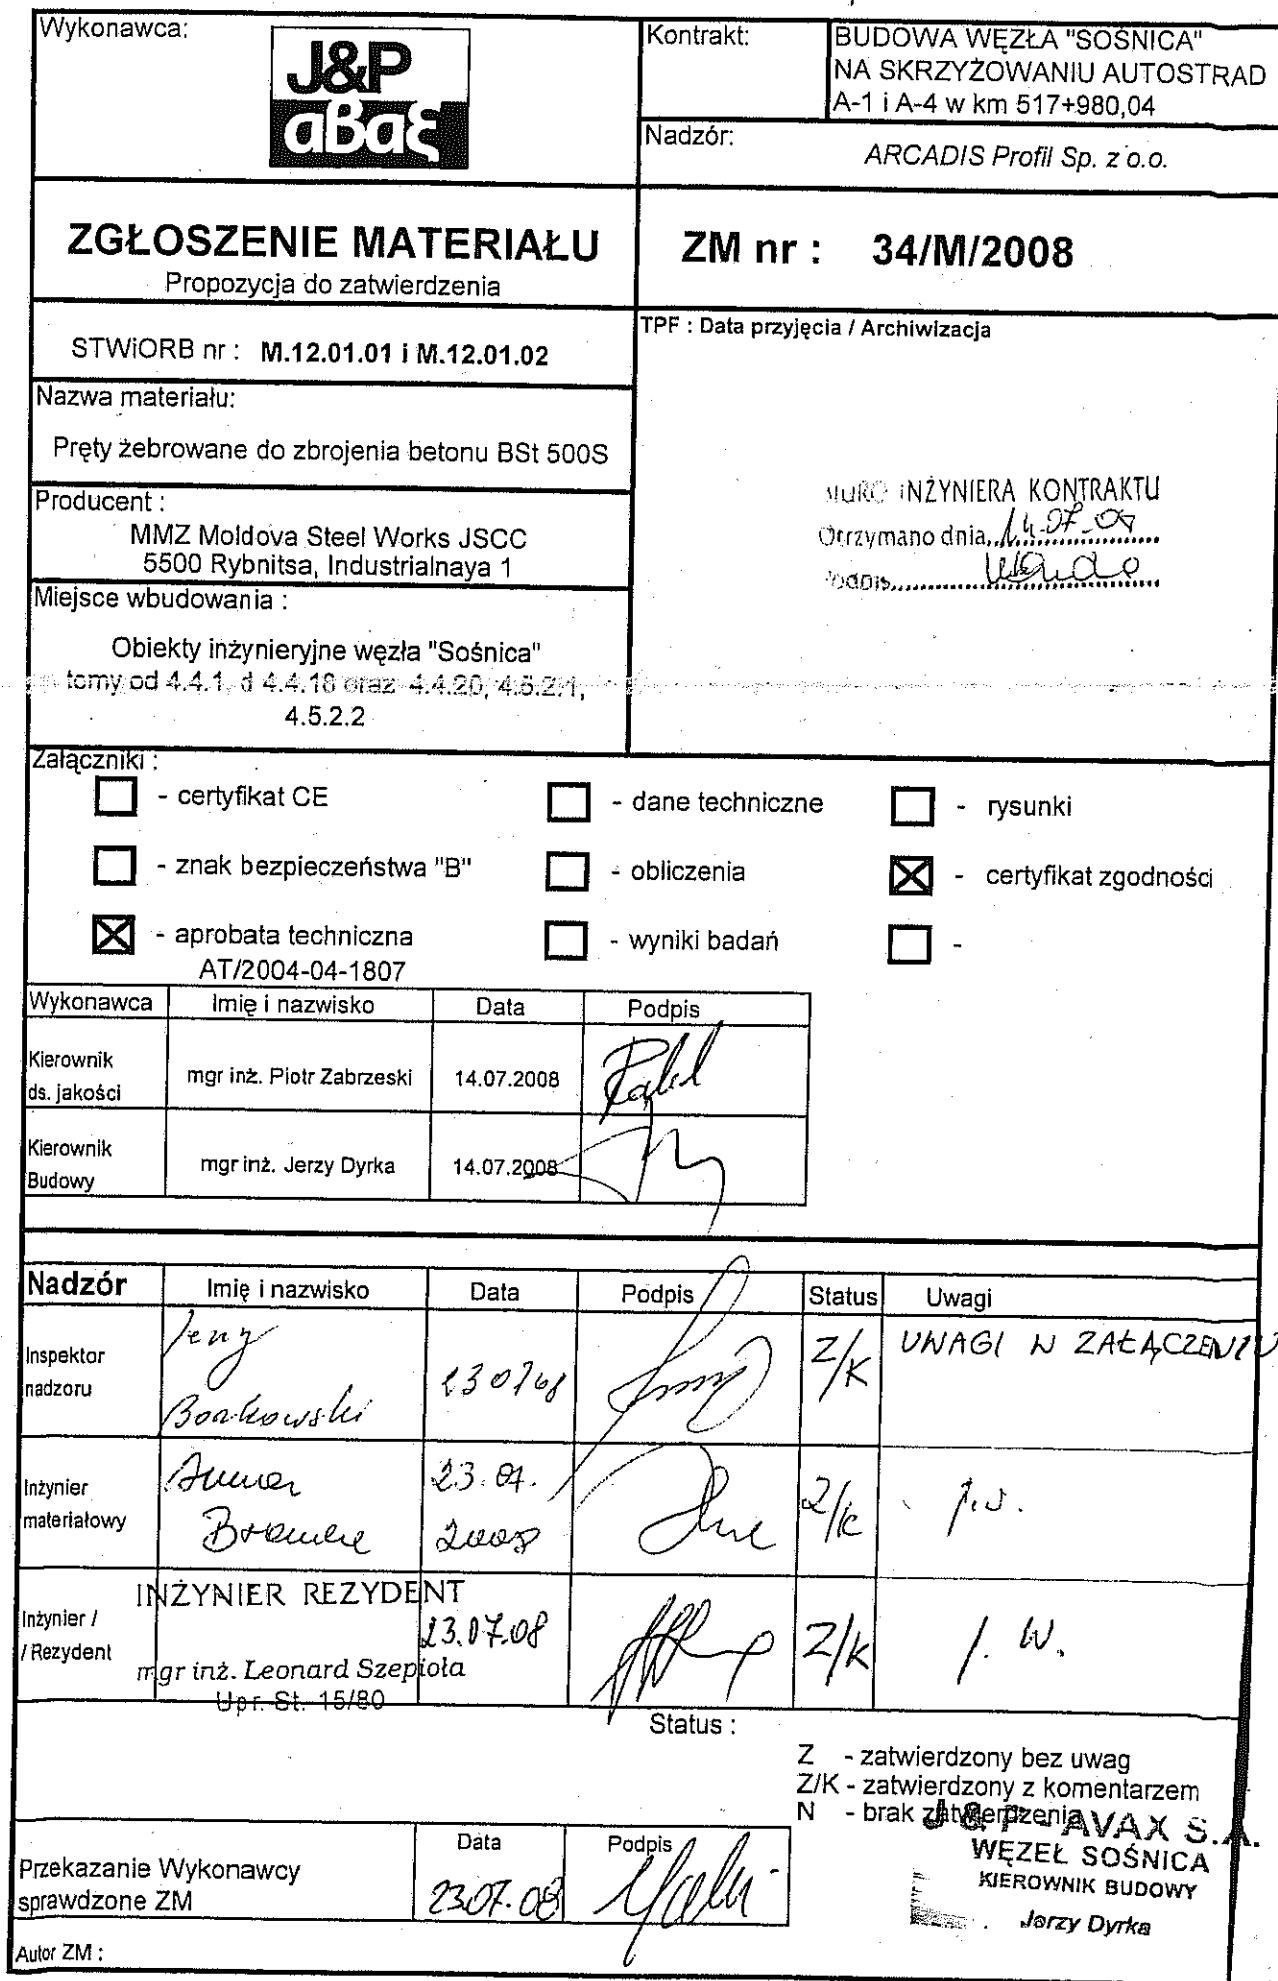 Wykonawca:
J&P
αBαξ
Kontrakt:
BUDOWA WĘZŁA "SOŚNICA"
NA SKRZYŻOWANIU AUTOSTRAD
A-1 i A-4 w km 517+980,04
Nadzór:
ARCADIS Profil Sp. z o.o.
ZGŁOSZENIE MATERIAŁU
Propozycja do zatwierdzenia
ZM nr : 34/M/2008
STWiORB nr : M.12.01.01 i M.12.01.02
TPF : Data przyjęcia / Archiwizacja
Nazwa materiału:
Pręty żebrowane do zbrojenia betonu BSt 500S
Producent :
MMZ Moldova Steel Works JSCC
5500 Rybnitsa, Industrialnaya 1
BIURO INŻYNIERA KONTRAKTU
Otrzymano dnia 14.07.08
Podpis
Miejsce wbudowania :
Obiekty inżynieryjne węzła "Sośnica"
tomy od 4.4.1, d 4.4.18 oraz 4.4.20, 4.5.2.1,
4.5.2.2
Załączniki :
- certyfikat CE
- dane techniczne
- rysunki
- znak bezpieczeństwa "B"
- obliczenia
- certyfikat zgodności
- aprobata techniczna
AT/2004-04-1807
- wyniki badań
-
Wykonawca Imię i nazwisko Data Podpis
Kierownik
ds. jakości
mgr inż. Piotr Zabrzeski 14.07.2008
Kierownik
Budowy
mgr inż. Jerzy Dyrka 14.07.2008
Nadzór Imię i nazwisko Data Podpis Status Uwagi
Inspektor
nadzoru
Jerzy
Borkowski
230708
Z/K
UWAGI W ZAŁĄCZENIU
Inżynier
materiałowy
23.07.
2008
Z/K
j.w.
Inżynier /
/ Rezydent
INŻYNIER REZYDENT
mgr inż. Leonard Szepioła
Upr. St. 15/80
23.07.08
Z/K
j. w.
Status :
Z - zatwierdzony bez uwag
Z/K - zatwierdzony z komentarzem
N - brak zatwierdzenia
J & P - AVAX S.A.
WĘZEŁ SOŚNICA
KIEROWNIK BUDOWY
Jerzy Dyrka
Przekazanie Wykonawcy
sprawdzone ZM
Data
23.07.08
Podpis
Autor ZM :